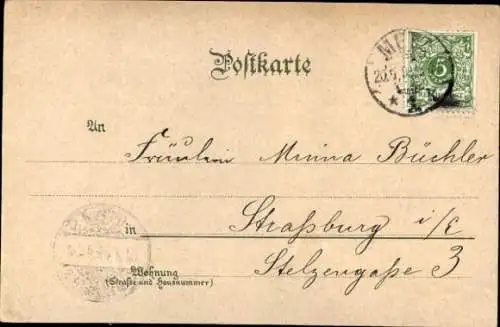 Postkarte
5
An
Fräulein Minna Büchler
in Straßburg i/E
Wohnung Stelzengaße 3
(Straße und Hausnummer)